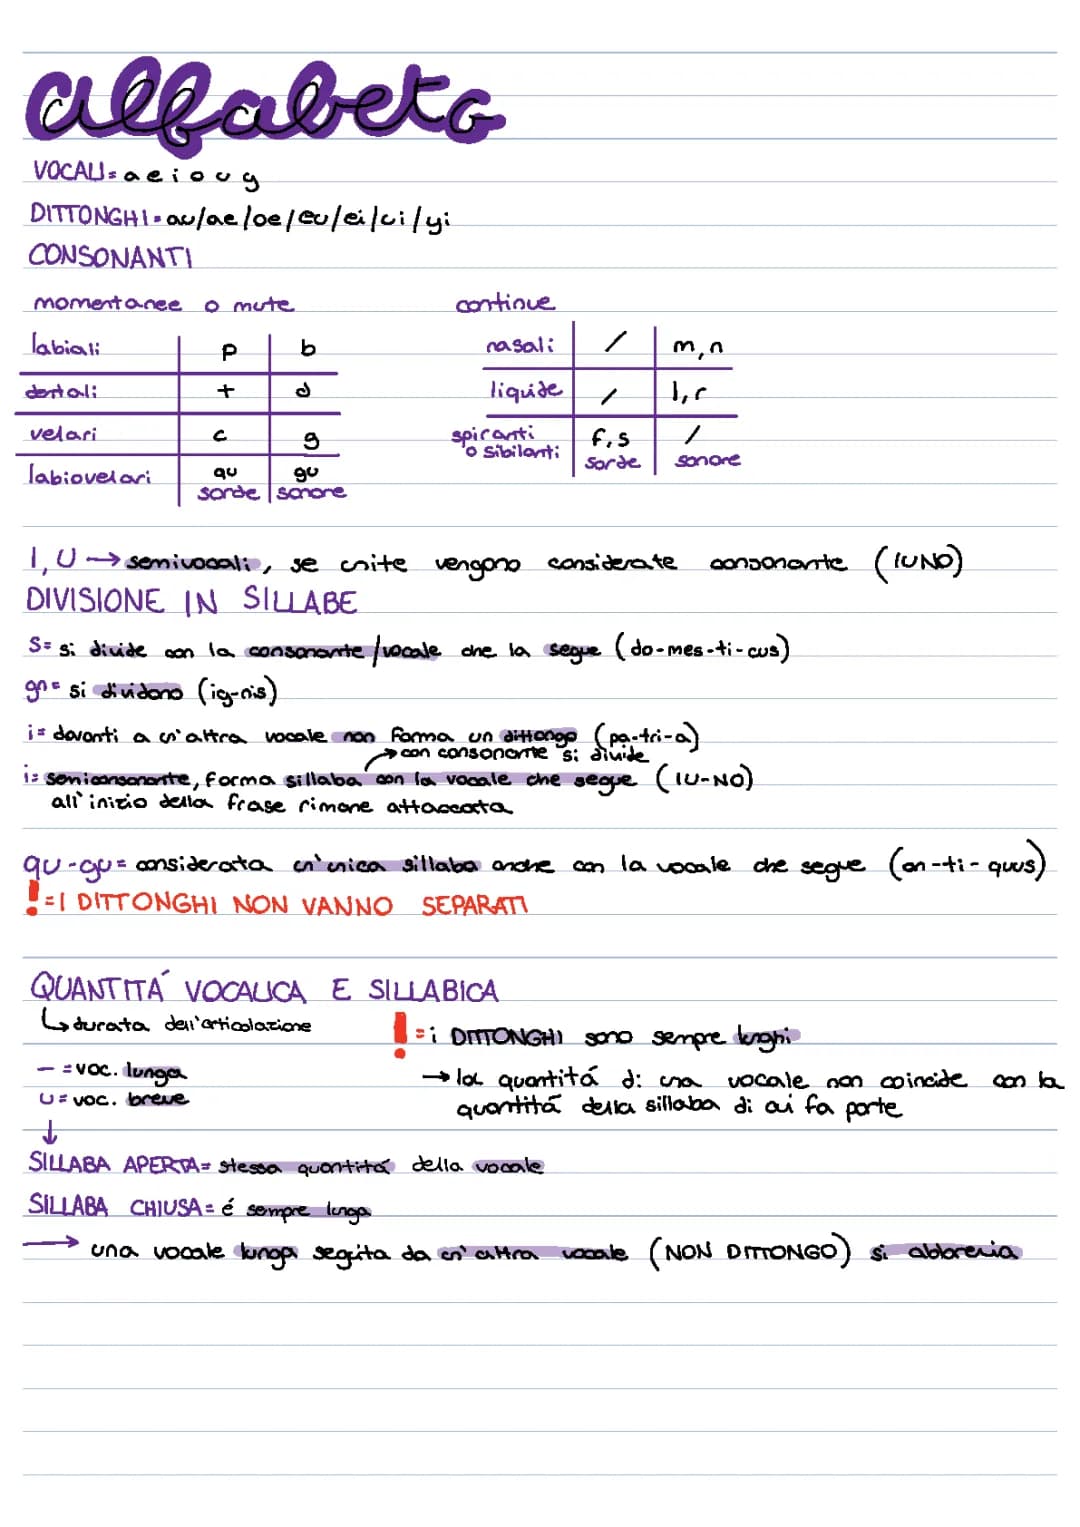 alfabeto
VOCALI= a e i o u y
DITTONGHI= au/ae/oe/eu/ei/ui/yi
CONSONANTI
momentanee o mute
labiali p b
dentali t d
velari c g
labiovelari qu gu
sorde sonore
continue
nasali / m,n
liquide / l,r
spiranti f,s /
o sibilanti sorde sonore
I, U → semivocali, se unite vengono considerate consonante (IUNO)
DIVISIONE IN SILLABE
S= si divide con la consonante/vocale che la segue (do-mes-ti-cus)
gn= si dividono (ig-nis)
i= davanti a un'altra vocale non forma un dittongo (pa-tri-a)
→ con consonante si divide
i= semiconsonante, forma sillaba con la vocale che segue (IU-NO)
all'inizio della frase rimane attaccata
qu-gu= considerata un'unica sillaba anche con la vocale che segue (an-ti-quus)
!=I DITTONGHI NON VANNO SEPARATI
QUANTITÁ VOCALICA E SILLABICA
↳ durata dell'articolazione
— =voc. lunga
U= voc. breve
↓
!=i DITTONGHI sono sempre lunghi
→ la quantitá di una vocale non coincide con la
quantitá della sillaba di cui fa parte
SILLABA APERTA= stessa quantitá della vocale
SILLABA CHIUSA= é sempre lunga
→ una vocale lunga seguita da un'altra vocale (NON DITTONGO) si abbrevia